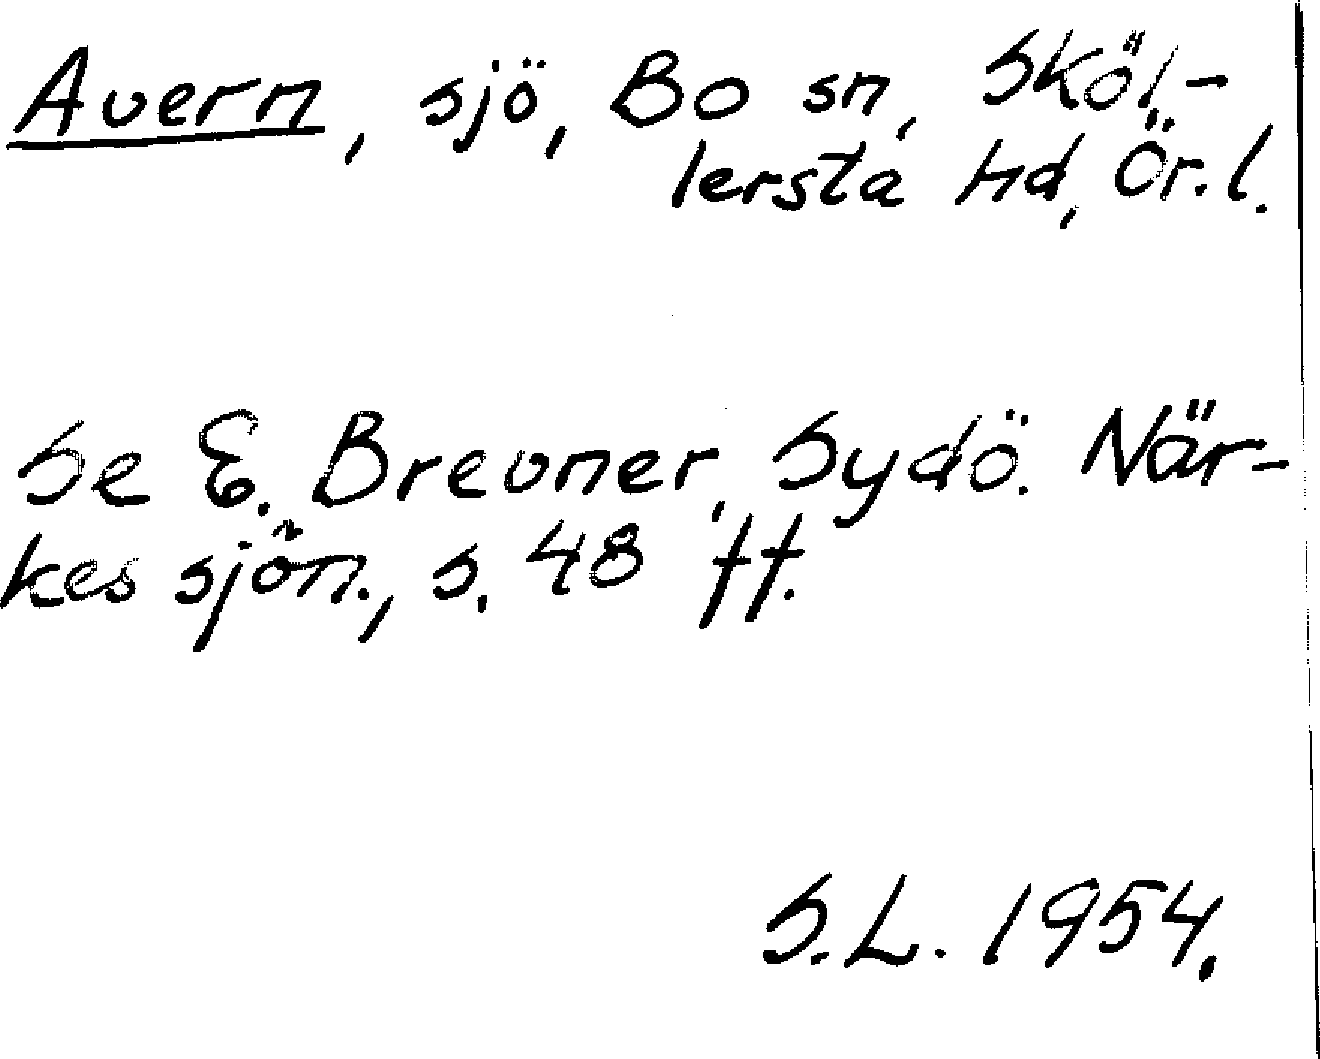 Avern, sjö, Bo sn, Sköl-
lersta hd, Ör. l.
Se E. Brevner, Sydö. När-
kes sjön., s. 48 ff.
S.L. 1954.